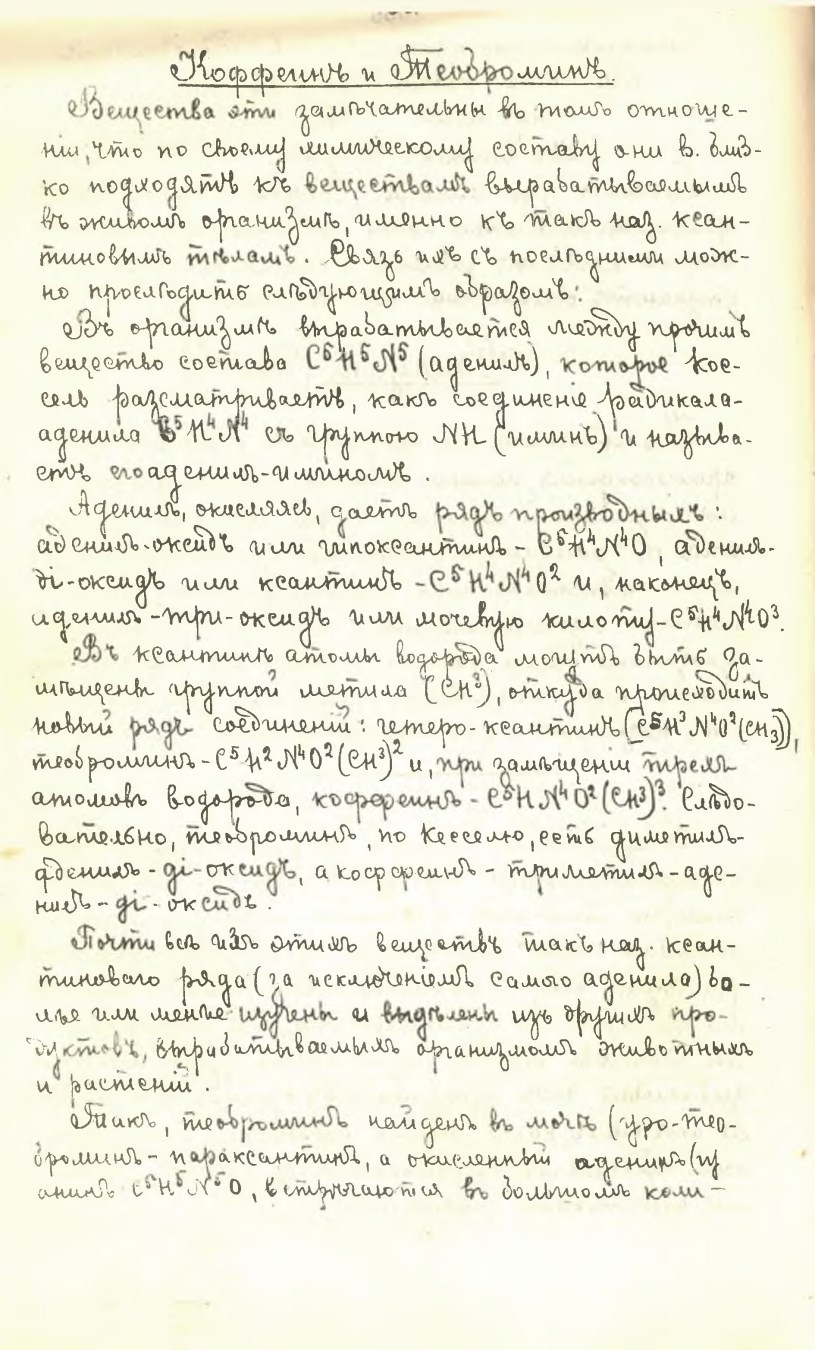 Коффеинъ и Теоброминъ.
Вещества эти замѣчательны въ томъ отноше-
ніи, что по своему химическому составу они в. близ-
ко подходятъ къ веществамъ вырабатываемымъ
въ живомъ организмѣ, именно къ такъ наз. ксан-
тиновымъ тѣламъ. Связь ихъ съ послѣдними мож-
но прослѣдить слѣдующимъ образомъ:
Въ организмѣ вырабатывается между прочимъ
вещество состава C⁵H⁵N⁵ (аденинъ), которое Кос-
сель разсматриваетъ, какъ соединеніе радикала-
аденила C⁵H⁴N⁴ съ группою NH (иминъ) и называ-
етъ его аденилъ-иминомъ.
Аденилъ, окисляясь, даетъ рядъ производныхъ:
аденилъ-оксидъ или гипоксантинъ - C⁵H⁴N⁴O, аденилъ-
ді-оксидъ или ксантинъ - C⁵H⁴N⁴O² и, наконецъ,
аденилъ-три-оксидъ или мочевую кислоту - C⁵H⁴N⁴O³.
Въ ксантинѣ атомы водорода могутъ быть за-
мѣщены группой метила (CH³), откуда происходитъ
новый рядъ соединеній: гетеро-ксантинъ (C⁵H³N⁴O²(CH₃)),
теоброминъ - C⁵H²N⁴O²(CH³)² и, при замѣщеніи трехъ
атомовъ водорода, коффеинъ - C⁵HN⁴O²(CH³)³. Слѣдо-
вательно, теоброминъ, по Кесселю, есть диметилъ-
аденилъ - ді-оксидъ, а коффеинъ - триметилъ - аде-
нилъ - ді - оксидъ.
Почти всѣ изъ этихъ веществъ такъ наз. ксан-
тиноваго ряда (за исключеніемъ самого аденила) бо-
лѣе или менѣе изучены и выдѣлены изъ другихъ про-
дуктовъ, вырабатываемыхъ организмомъ животныхъ
и растеній.
Такъ, теоброминъ найденъ въ мочѣ (уро-тео-
броминъ - параксантинъ, а окисленный аденинъ (гу
анинъ C⁵H⁵N⁵O, встрѣчаются въ большомъ коли-